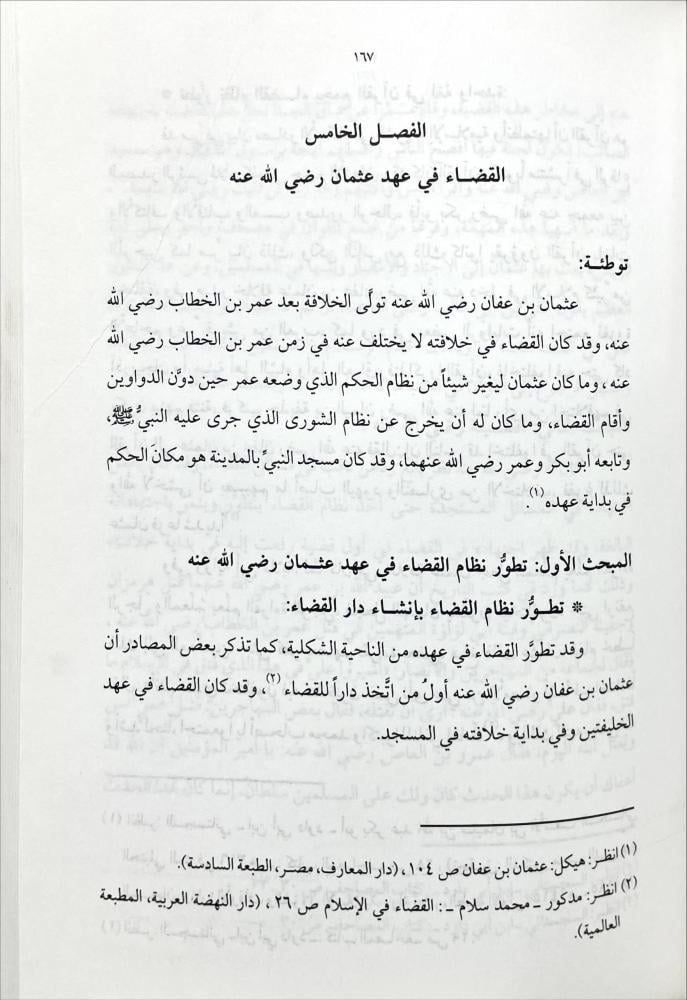 ١٦٧
الفصل الخامس
القضاء في عهد عثمان رضي الله عنه
توطئة:
عثمان بن عفان رضي الله عنه تولَّى الخلافة بعد عمر بن الخطاب رضي الله
عنه، وقد كان القضاء في خلافته لا يختلف عنه في زمن عمر بن الخطاب رضي الله
عنه، وما كان عثمان ليغير شيئاً من نظام الحكم الذي وضعه عمر حين دوَّن الدواوين
وأقام القضاء، وما كان له أن يخرج عن نظام الشورى الذي جرى عليه النبيُّ ﷺ،
وتابعه أبو بكر وعمر رضي الله عنهما، وقد كان مسجد النبيِّ بالمدينة هو مكانَ الحكم
في بداية عهده(١).
المبحث الأول: تطوُّر نظام القضاء في عهد عثمان رضي الله عنه
* تطوُّر نظام القضاء بإنشاء دار القضاء:
وقد تطوَّر القضاء في عهده من الناحية الشكلية، كما تذكر بعض المصادر أن
عثمان بن عفان رضي الله عنه أولُ من اتَّخذ داراً للقضاء(٢)، وقد كان القضاء في عهد
الخليفتين وفي بداية خلافته في المسجد.
(١) انظر: هيكل: عثمان بن عفان ص ١٠٤، (دار المعارف، مصر، الطبعة السادسة).
(٢) انظر: مدكور ـ محمد سلام ـ: القضاء في الإسلام ص ٢٦، (دار النهضة العربية، المطبعة
العالمية).